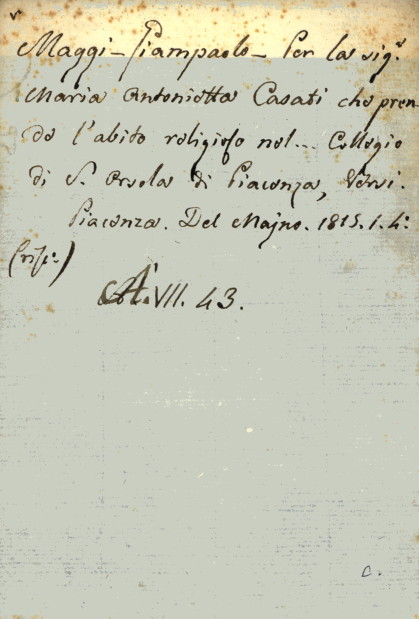 Maggi - Giampaolo - Per la sig.ª
Maria Antonietta Casati che pren-
de l'abito religioso nel... Collegio
di S. Orsola di Piacenza, Versi.
Piacenza. Del Majno. 1815. 1. 4:
VII. 43.
C.